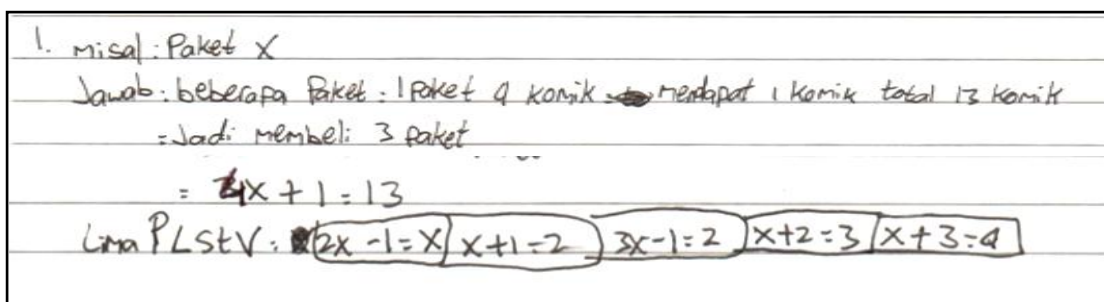 1. Misal : Paket X
Jawab : beberapa Paket : 1 Paket 4 komik mendapat 1 komik total 13 komik
= Jadi membeli 3 paket
= 4x + 1 = 13
Lima PLStV : 2x - 1 = x x + 1 = 2 3x - 1 = 2 x + 2 = 3 x + 3 = 4